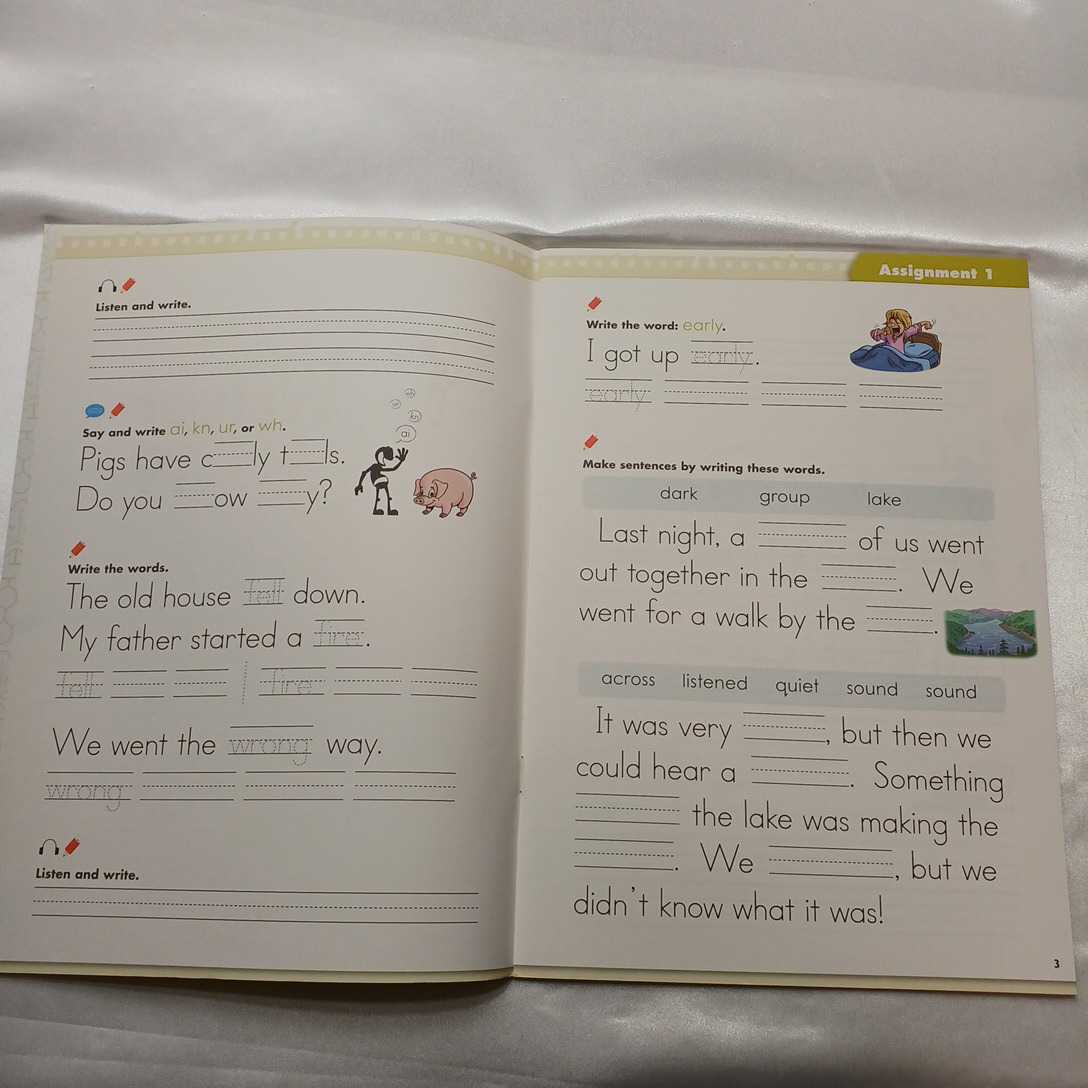 Listen and write.
Say and write ai, kn, ur, or wh.
Pigs have c ly t ls.
Do you ow y?
ai
kn
Write the words.
The old house fell down.
My father started a fire.
fell fire
We went the wrong way.
wrong
Listen and write.
Assignment 1
Write the word: early.
I got up early.
early
Make sentences by writing these words.
dark group lake
Last night, a of us went
out together in the . We
went for a walk by the .
across listened quiet sound sound
It was very , but then we
could hear a . Something
the lake was making the
. We , but we
didn't know what it was!
3